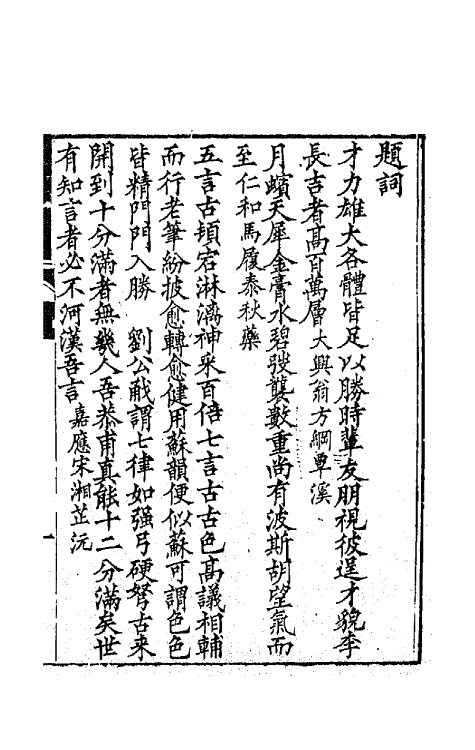 題詞
才力雄大各體皆足以勝時輩友朋視彼逞才貌李
長吉者高百萬層 大興翁方綱覃溪
月蠙天犀金膏水碧襲數重尚有波斯胡望氣而
至 仁和馬履泰秋藥
五言古頓宕淋漓神采百倍七言古古色高議相輔
而行老筆紛披愈轉愈健用蘇韻便似蘇可謂色色
皆精門門入勝 劉公㦷謂七律如强弓硬弩古来
開到十分滿者無幾人吾恭甫真能十二分滿矣世
有知言者必不河漢吾言 嘉應宋湘芷沅